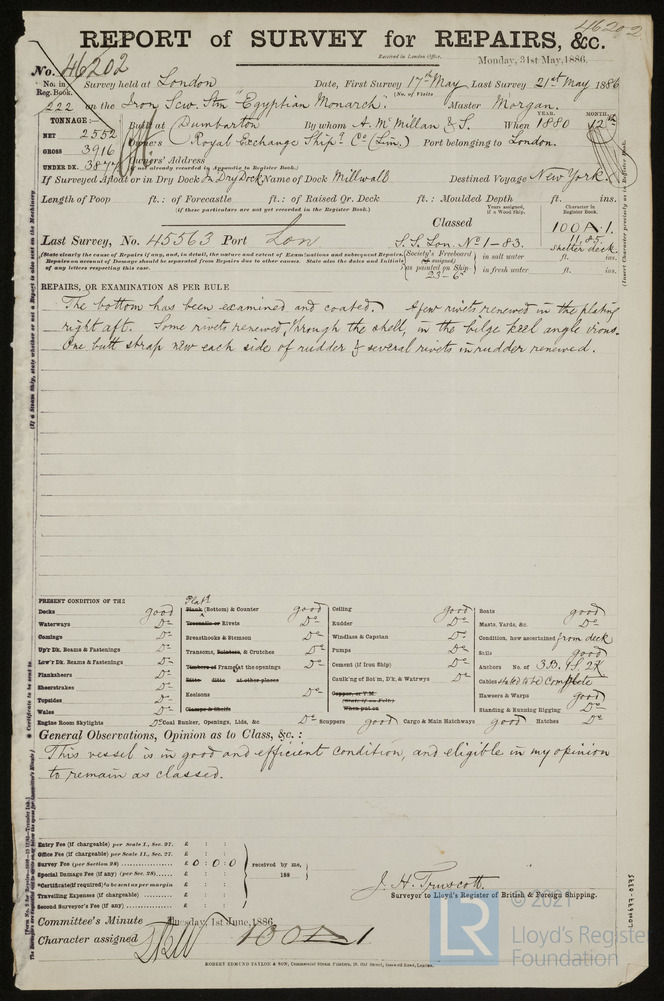 46202
REPORT of SURVEY for REPAIRS, &c.
Received in London Office.
Monday, 31st May, 1886.
No. 46202
No. in Reg. Book. 222
Survey held at London Date, First Survey 17th May Last Survey 21st May 1886
(No. of Visits
on the Iron Scw. Stm "Egyptian Monarch." Master Morgan.
TONNAGE:—
NET 2552
GROSS 3916
UNDER DK. 387
YEAR. MONTH.
Built at Dumbarton By whom A. McMillan & S. When 1880 12th
Owners Royal Exchange Ship. Co (Lim.) Port belonging to London.
Owners' Address
(if not already recorded in Appendix to Register Book.)
If Surveyed Afloat or in Dry Dock In Dry Dock Name of Dock Millwall Destined Voyage New York.
Length of Poop ft.: of Forecastle ft.: of Raised Qr. Deck ft.: Moulded Depth ft. ins.
(if these particulars are not yet recorded in the Register Book.)
Years assigned, if a Wood Ship.
Character in Register Book.
Classed 100A.1.
11,85
Shelter deck
Last Survey, No. 45563 Port Lon S.S. Lon. No. 1-83.
(State clearly the cause of Repairs if any, and, in detail, the nature and extent of Examinations and subsequent Repairs.
Repairs on account of Damage should be separated from Repairs due to other causes. State also the dates and Initials
of any letters respecting this case.
Society's Freeboard
(if assigned)
as painted on Ship
23-6
in salt water ft. ins.
in fresh water ft. ins.
REPAIRS, OR EXAMINATION AS PER RULE
The bottom has been examined and coated. A few rivets renewed in the plating
right aft. Some rivets renewed, through the shell, in the bilge keel angle irons.
One butt strap new each side of rudder & several rivets in rudder renewed.
PRESENT CONDITION OF THE
Decks good
Waterways Do
Comings Do
Up'r Dk. Beams & Fastenings Do
Low'r Dk. Beams & Fastenings Do
Planksheers Do
Sheerstrakes Do
Topsides Do
Wales Do
Engine Room Skylights Do
Platg
Plank (Bottom) & Counter good
Treenails or Rivets Do
Breasthooks & Stemson Do
Transoms, Pointers, & Crutches Do
Timbers of Frame at the openings Do
Ditto ditto at other places
Keelsons Do
Clamps & Shelfs
Coal Bunker, Openings, Lids, &c Do
Ceiling good
Rudder Do
Windlass & Capstan Do
Pumps Do
Cement (if Iron Ship) Do
Caulk'g of Bot'm, D'k, & Watrwys Do
Copper, or Y.M.
(Stat. if on Felt)
When put on
Scuppers good Cargo & Main Hatchways good Hatches Do
Boats good
Masts, Yards, &c. Do
Condition, how ascertained from deck
Sails good
Anchors No. of 3B. 1S. 2K
Cables stated to be complete
Hawsers & Warps good
Standing & Running Rigging Do
General Observations, Opinion as to Class, &c.:
This vessel is in good and efficient condition, and eligible in my opinion
to remain as classed.
Entry Fee (if chargeable) per Scale I., Sec. 27. £ : :
Office Fee (if chargeable) per Scale II., Sec. 27. £ : :
Survey Fee (per Section 28) £ 0 : 0 : 0
Special Damage Fee (if any) (per Sec. 28) £ : :
*Certificate (if required) to be sent as per margin £ : :
Travelling Expenses (if chargeable) £ : :
Second Surveyor's Fee (if any) £ : :
received by me,
188
J. H. Truscott.
Surveyor to Lloyd's Register of British & Foreign Shipping.
Committee's Minute Tuesday, 1st June, 1886
Character assigned 100A1
ROBERT EDMUND TAYLOR & SON, Commercial Steam Printers, 19, Old Street, Goswell Road, London.
LR © 2021
Lloyd's Register
Foundation
LON677-0395
(If a Steam Ship, state whether or not a Report is also sent on the Machinery
* Certificate to be sent to
(Insert Character precisely as in Register Book.